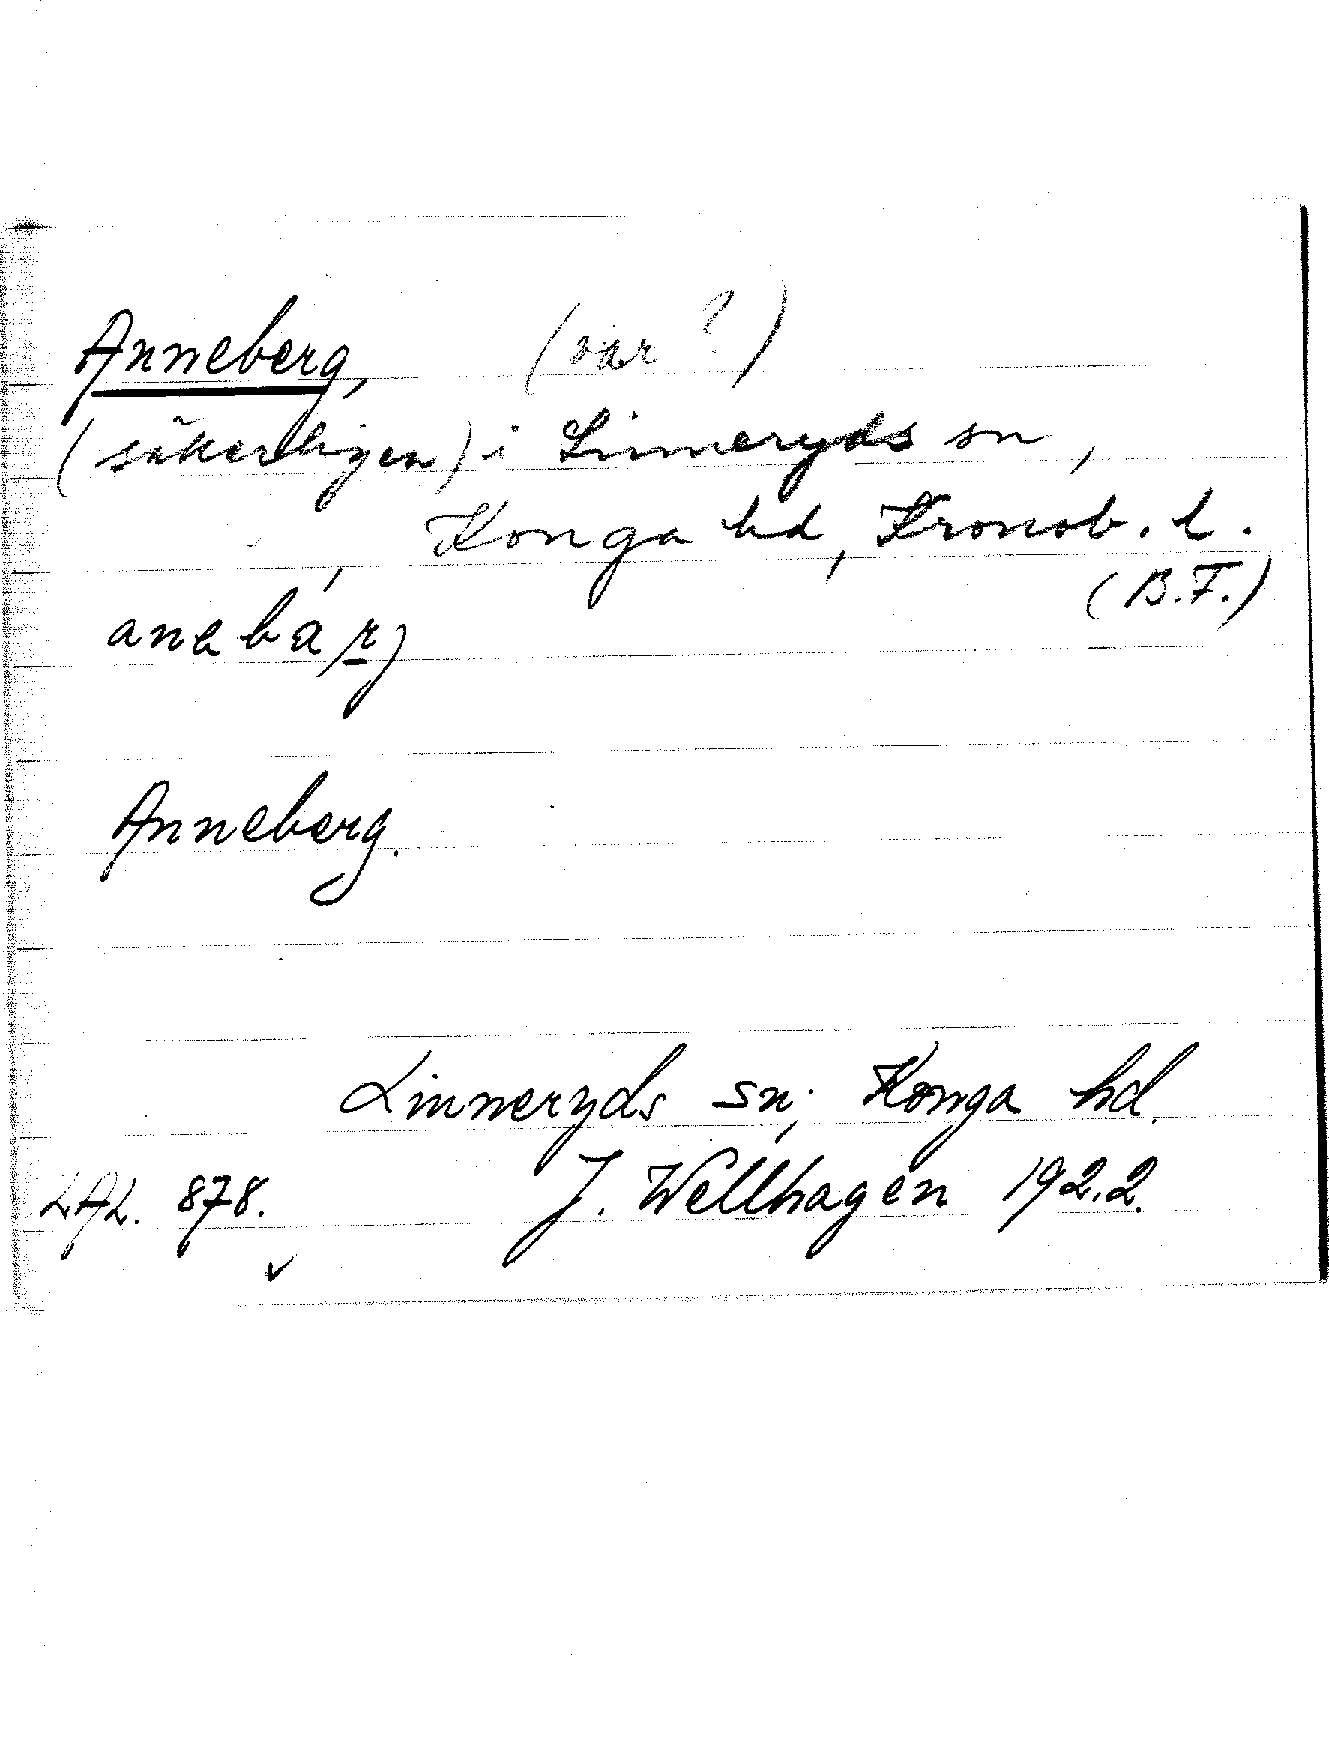 Anneberg, (var?)
(säkerligen) i Linneryds sn,
Konga hd, Kronob. l.
(B.F.)
Anneberg.
Linneryds sn; Konga hd.
LAL. 878. J. Wellhagen 1922.